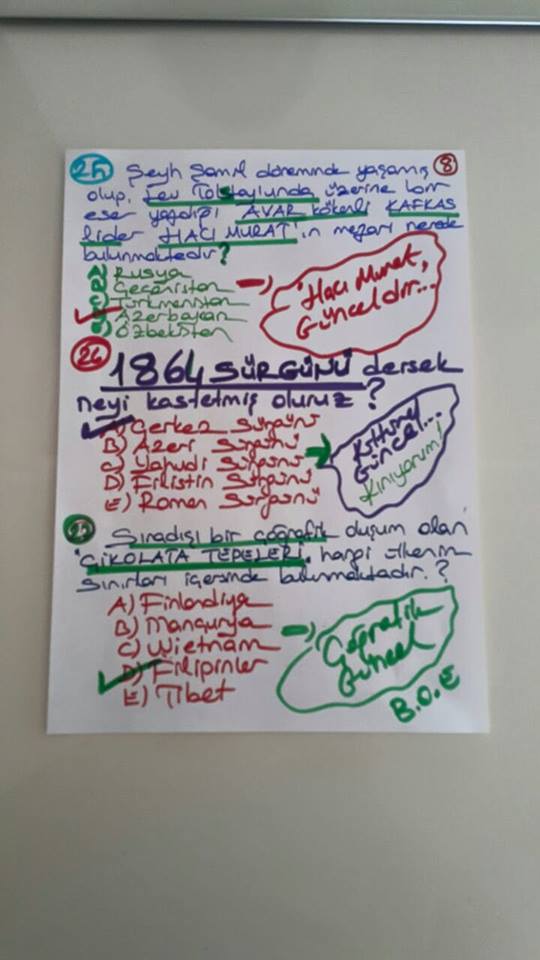 25 Şeyh Şamil döneminde yaşamış 8
olup, Lev Tolstoylunda üzerine bir
eser yazdığı AVAR kökenli KAFKAS
lider HACI MURAT'ın mezarı nerede
bulunmaktadır?
A) Rusya
B) Gürcistan
C) Türkmenistan
D) Azerbaycan
E) Özbekistan
Hacı Murat,
Günceldir...
26
1864 SÜRGÜNÜ dersek
neyi kastetmiş oluruz?
A) Çerkez Sürgünü
B) Azeri Sürgünü
C) Yahudi Sürgünü
D) Filistin Sürgünü
E) Roman Sürgünü
Kültürel
Güncel...
Kınıyorum!
Sıradışı bir coğrafik oluşum olan
"ÇİKOLATA TEPELERİ, hangi ülkenin
sınırları içersinde bulunmaktadır.?
A) Finlandiya
B) Mançurya
C) Vietnam
D) Filipinler
E) Tibet
Coğrafik
Güncel
B.O.E